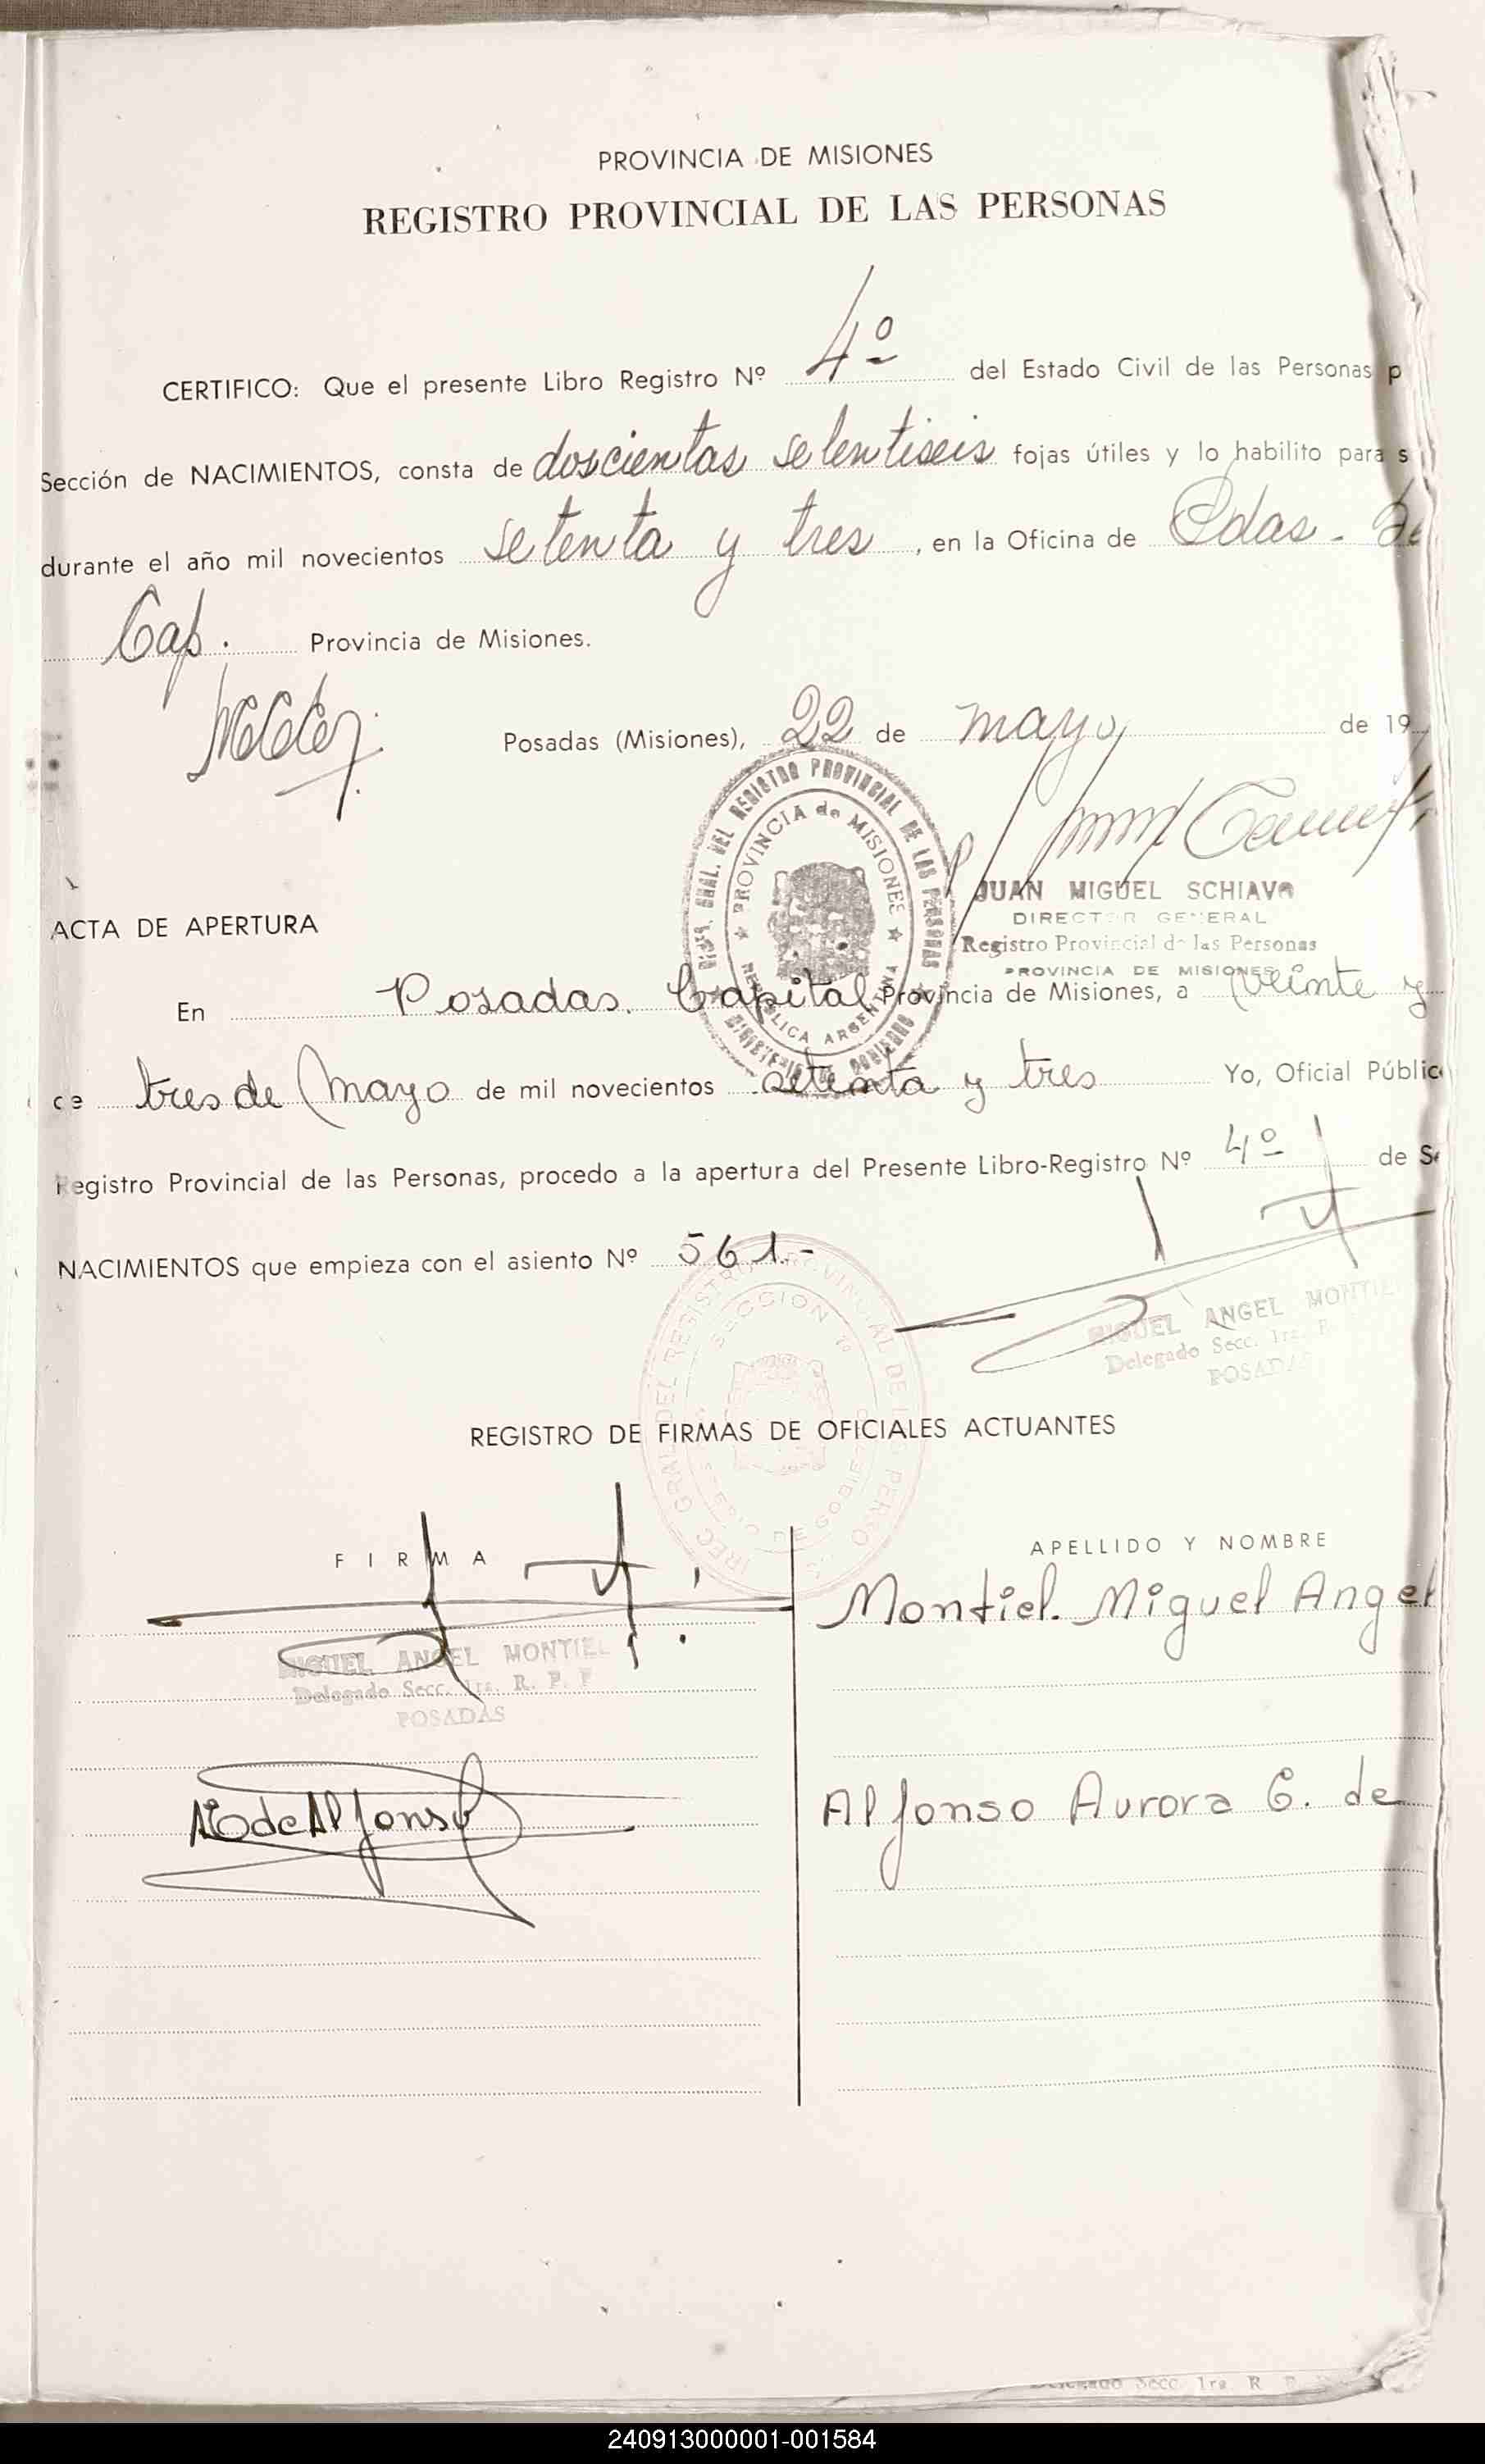 PROVINCIA DE MISIONES
REGISTRO PROVINCIAL DE LAS PERSONAS
CERTIFICO: Que el presente Libro Registro Nº 4º del Estado Civil de las Personas p
Sección de NACIMIENTOS, consta de doscientas setentiseis fojas útiles y lo habilito para s
durante el año mil novecientos setenta y tres, en la Oficina de Pdas. De
Cap. Provincia de Misiones.
Posadas (Misiones), 22 de mayo de 19
DIR. GRAL. DEL REGISTRO PROVINCIAL DE LAS PERSONAS
PROVINCIA de MISIONES
REPUBLICA ARGENTINA
MINISTERIO DE GOBIERNO
JUAN MIGUEL SCHIAVO
DIRECTOR GENERAL
Registro Provincial de las Personas
PROVINCIA DE MISIONES
ACTA DE APERTURA
En Posadas. Capital Provincia de Misiones, a veinte y
de tres de mayo de mil novecientos setenta y tres Yo, Oficial Públic
Registro Provincial de las Personas, procedo a la apertura del Presente Libro-Registro Nº 4º de Se
NACIMIENTOS que empieza con el asiento Nº 561.-
MIGUEL ANGEL MONTIEL
Delegado Secc. 1ra. R.
POSADAS
REGISTRO DE FIRMAS DE OFICIALES ACTUANTES
FIRMA APELLIDO Y NOMBRE
Montiel. Miguel Angel
MIGUEL ANGEL MONTIEL
Delegado Secc. 1ra. R. P. P
POSADAS
de Alfonso Alfonso Aurora G. de
Delegado Secc 1ra R
240913000001-001584